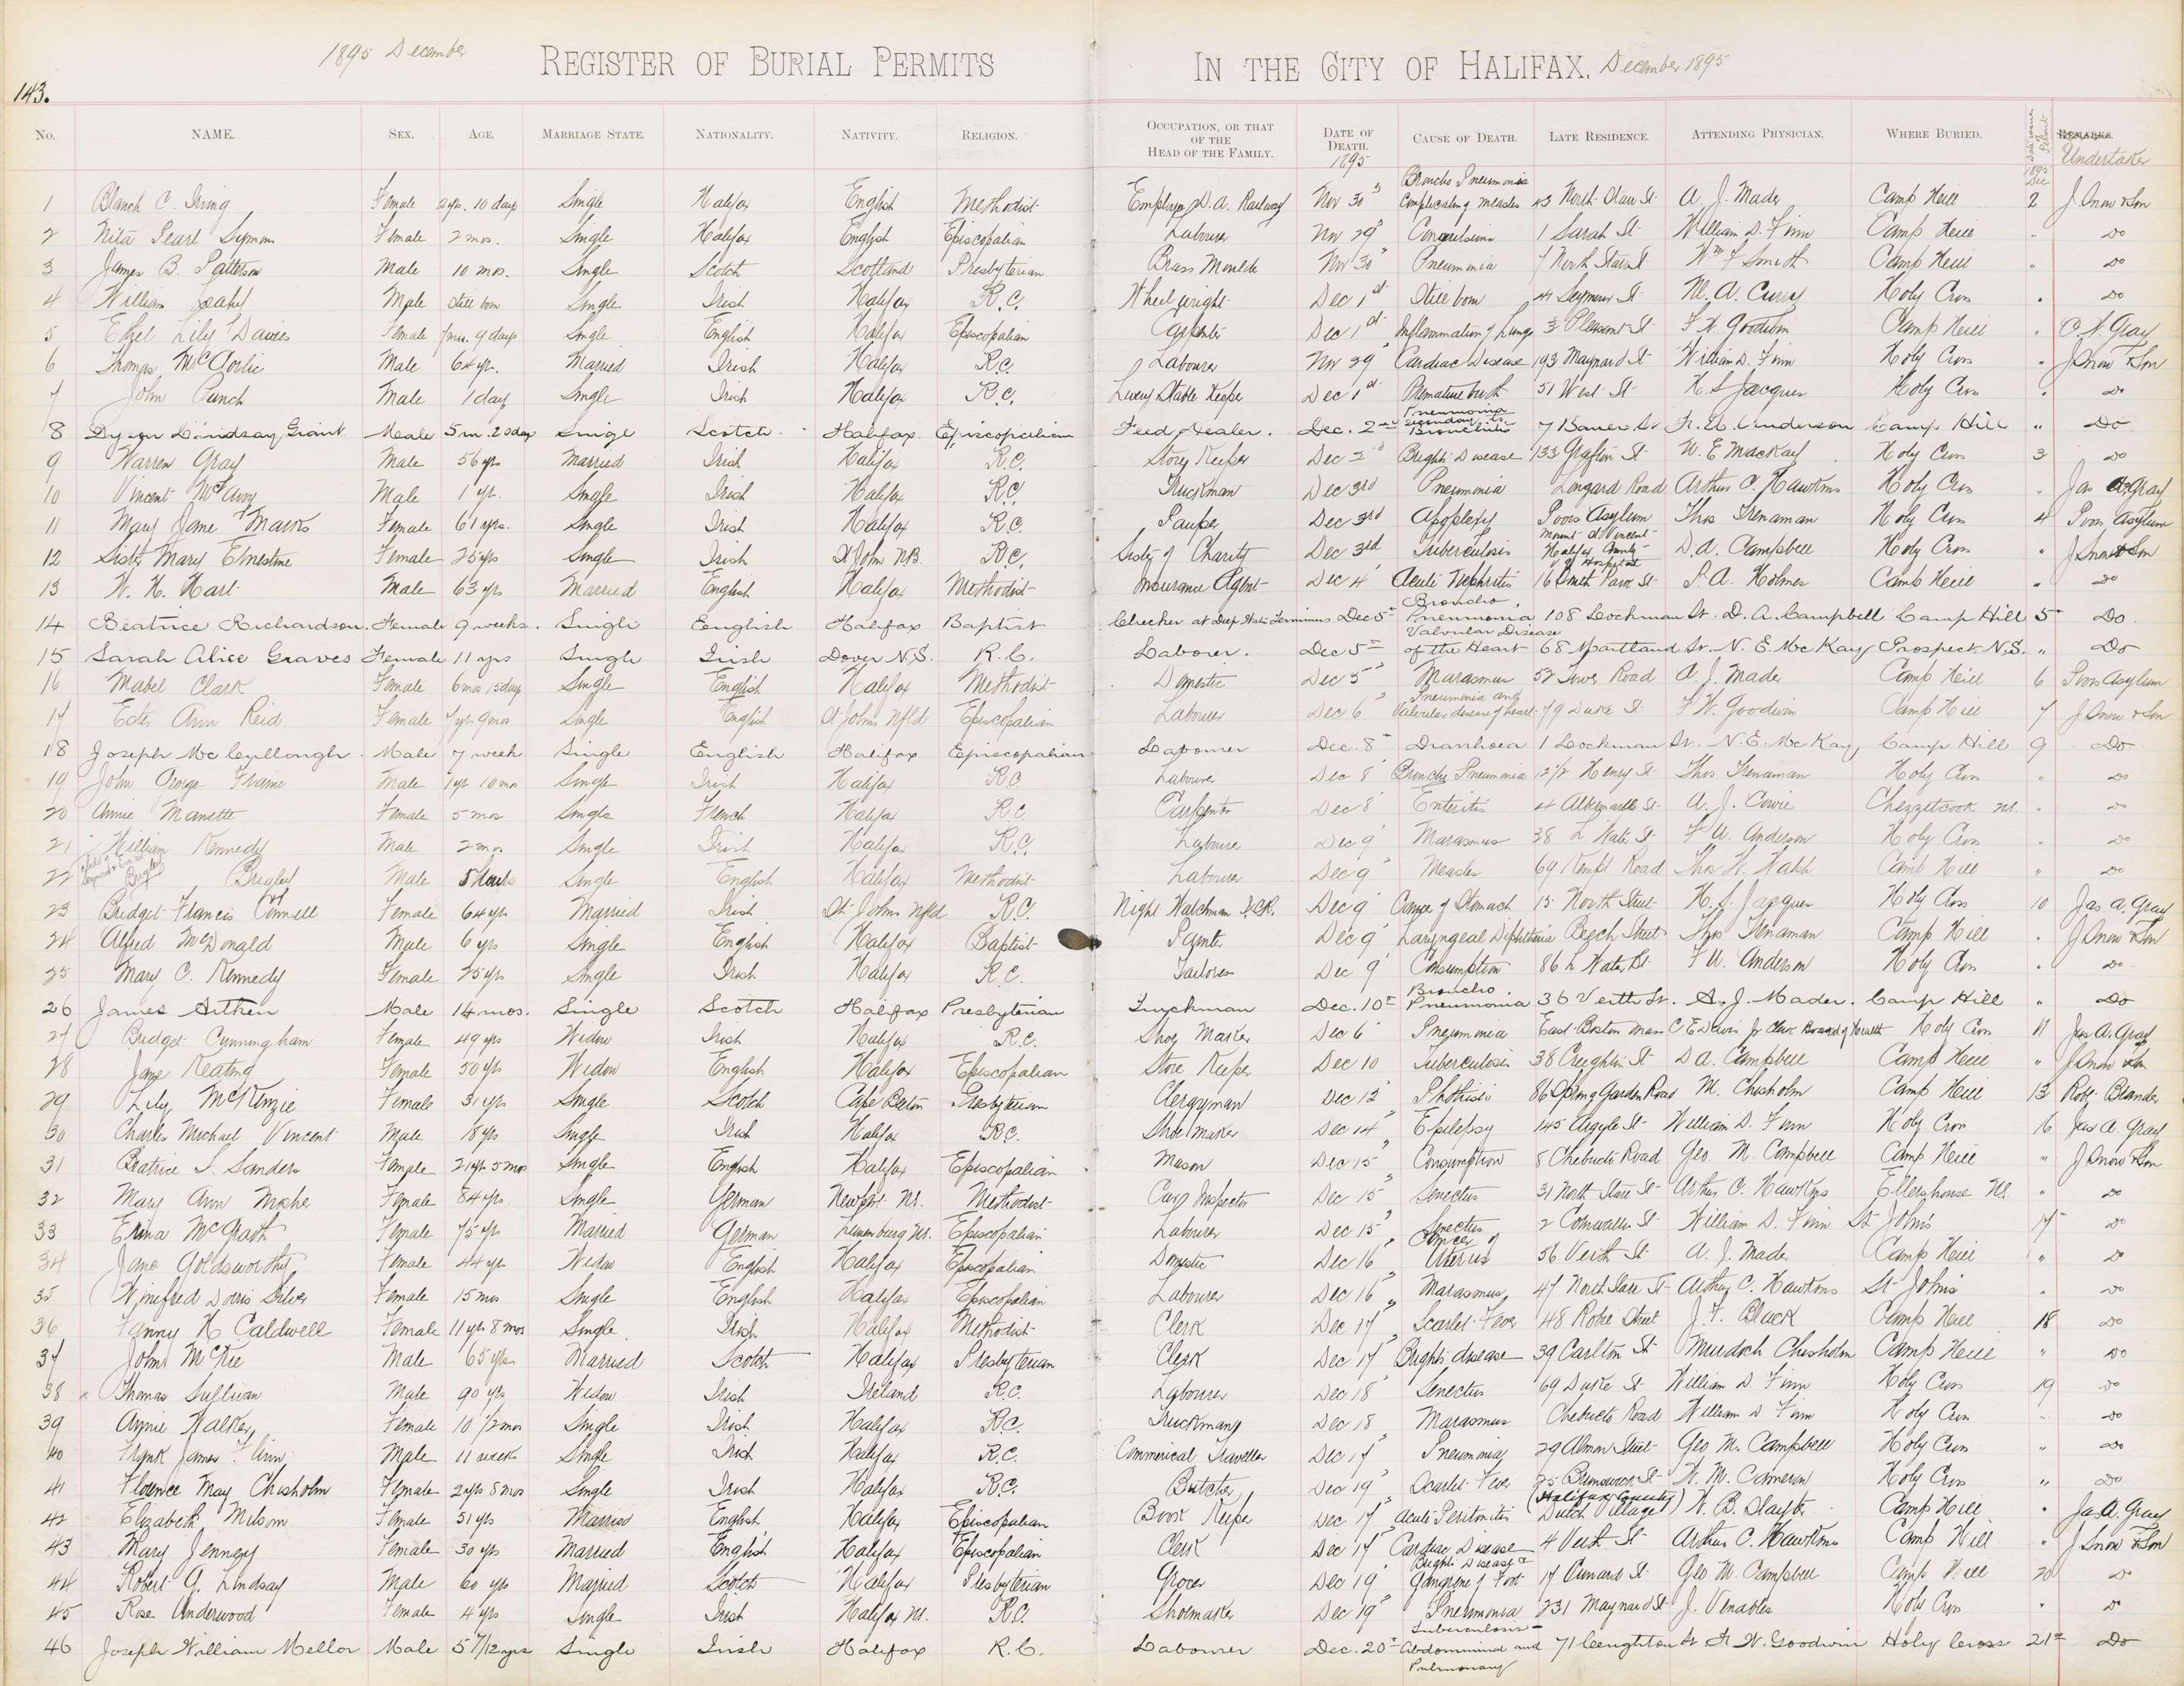 1895 December REGISTER OF BURIAL PERMITS IN THE CITY OF HALIFAX. December 1895
143.
No. NAME. SEX. AGE. MARRIAGE STATE. NATIONALITY. NATIVITY. RELIGION. OCCUPATION, OR THAT OF THE HEAD OF THE FAMILY. DATE OF DEATH. 1895 CAUSE OF DEATH. LATE RESIDENCE. ATTENDING PHYSICIAN. WHERE BURIED. 1895 Dec REMARKS. Undertaker
1 Blanch C. Irving Female 2 yrs. 10 days Single Halifax English Methodist Employee D.A. Railway Nov 30" Broncho Pneumonia Complicating Measles 43 North Starr St A. J. Mader Camp Hill 2 J Snow & Son
2 Nita Pearl Female 2 mos. Single Halifax English Episcopalian Labourer Nov 29" Convulsions 1 Sarah St William D. Finn Camp Hill " Do
3 James B. Patterson Male 10 mos. Single Scotch Scotland Presbyterian Brass Moulder Nov 30" Pneumonia 7 North Starr St Wm F Smith Camp Hill " Do
4 William Leahy Male Still born Single Irish Halifax R.C. Wheelwright Dec 1st Still born 41 Seymour St M. A. Curry Holy Cross " Do
5 Ethel Lily Davies Female 9 days Single English Halifax Episcopalian Carpenter Dec 1st Inflammation of Lungs 3 Pleasant St F W. Goodwin Camp Hill " Gray
6 Thomas Male 64 yr. Married Irish Halifax R.C. Labourer Nov 29" Cardiac Disease 193 Maynard St William D. Finn Holy Cross " J Snow & Son
7 John Punch Male 1 day Single Irish Halifax R.C. Livery Stable Keeper Dec 1st Premature birth 51 West St H. S Jacques Holy Cross " Do
8 Dyson Lindsay Grant Male 5 m. 20 days Single Scotch Halifax Episcopalian Feed Dealer. Dec. 2nd Pneumonia secondary to Bronchitis 7 Bauer St F. U. Anderson Camp Hill " Do
9 Warren Gray Male 56 yrs Married Irish Halifax R.C. Store Keeper Dec 2nd Brights Disease 133 Grafton St W. E MacKay Holy Cross 3 Do
10 Vincent McAvoy Male 1 yr. Single Irish Halifax R.C. Truckman Dec 3rd Pneumonia Longard Road Arthur C. Hawkins Holy Cross " Jas A. Gray
11 Mary Jane Marks Female 61 yrs. Single Irish Halifax R.C. Pauper Dec 3rd Apoplexy Poors Asylum Thos Trenaman Holy Cross 4 Poors Asylum
12 Sister Mary Ernestine Female 25 yrs Single Irish St John NB. R.C. Sister of Charity Dec 3rd Tuberculosis Mount St Vincent Halifax County D. A. Campbell Holy Cross " J Snow & Son
13 W. H. Hart Male 63 yrs Married English Halifax Methodist Insurance Agent Dec 4" Acute Nephritis 16 South Park St S. A. Holmes Camp Hill " Do
14 Beatrice Richardson. Female 9 weeks. Single English Halifax Baptist Checker at Deep Water Terminus Dec 5th Broncho Pneumonia 108 Lockman St. D. A. Campbell Camp Hill 5th Do
15 Sarah Alice Graves Female 11 yrs Single Irish Dover N.S. R.C. Laborer. Dec 5th Valvular Disease of the Heart 68 Maitland St. N. E. McKay Prospect N.S. " Do
16 Mabel Clark Female 6 mos 15 days Single English Halifax Methodist Domestic Dec 5" Marasmus 52 Tower Road A. J. Mader Camp Hill 6 Poors Asylum
17 Ester Ann Reid Female 7 yrs 9 mos Single English St Johns Nfld Episcopalian Labourer Dec 6" Pneumonia and Valvular disease of heart 79 Duke St F W. Goodwin Camp Hill 7 J Snow & Son
18 Joseph McCullough. Male 7 week Single English Halifax Episcopalian Labourer Dec. 8th Diarrhoea 1 Lockman St. N. E. McKay Camp Hill 9 Do
19 John George Male 1 yr 10 mos Single Irish Halifax R.C Labourer Dec 8" Broncho Pneumonia 12 1/2 Henry St Thos Trenaman Holy Cross " Do
20 Annie Manette Female 5 mos Single French Halifax R.C. Carpenter Dec 8" Enteritis 4 Albermarle St. A. J. Cowie Chezzetcook NS. " Do
21 William Kennedy Male 2 mo. Single Irish Halifax R.C. Labourer Dec 9" Marasmus 38 L Water St F U. Anderson Holy Cross " Do
22 Male 5 hours Single English Halifax Methodist Labourer Dec 9" Measles 69 Kempt Road Thos W. Walsh Camp Hill " Do
23 Bridget Francis Connell Female 64 yrs Married Irish St. Johns Nfld R.C. Night Watchman I.C.R. Dec 9" Cancer of Stomach 15 North Street H. S. Jacques Holy Cross 10 Jas A. Gray
24 Alfred McDonald Male 6 yrs Single English Halifax Baptist Painter Dec 9" Laryngeal Diphtheria Beech Street Thos Trenaman Camp Hill " J Snow & Son
25 Mary C. Kennedy Female 25 yrs Single Irish Halifax R.C. Tailoress Dec 9" Consumption 86 L Water St F U. Anderson Holy Cross " Do
26 James Aitken Male 14 mos. Single Scotch Halifax Presbyterian Truckman Dec. 10th Broncho Pneumonia 36 Veith St. A. J. Mader. Camp Hill " Do
27 Bridget Cunningham Female 49 yrs Widow Irish Halifax R.C. Shoe Maker Dec 6" Pneumonia East Boston Mass C E Davis Jr Clerk Board of Health Holy Cross 11 Jas A. Gray
28 Jane Keating Female 50 yrs Widow English Halifax Episcopalian Store Keeper Dec 10 Tuberculosis 38 Creighton St D A. Campbell Camp Hill " J Snow & Son
29 Lily McKenzie Female 31 yrs Single Scotch Cape Breton Presbyterian Clergyman Dec 12" Phthisis 86 Spring Garden Road M. Chisholm Camp Hill 13 Robt. Blander
30 Charles Michael Vincent Male 18 yrs Single Irish Halifax R.C. Shoe Maker Dec 14" Epilepsy 145 Argyle St William D. Finn Holy Cross 16 Jas A. Gray
31 Beatrice S. Sanders Female 21 yrs 5 mos Single English Halifax Episcopalian Mason Dec 15" Consumption 8 Chebucto Road Geo. M. Campbell Camp Hill " J Snow & Son
32 Mary Ann Female 84 yrs. Single German Newport NS. Methodist Car Inspector Dec 15" Senectus 31 North Starr St Arthur C. Hawkins Ellershouse NS. " Do
33 McGrath Female 75 yrs Married German Lunenburg NS. Episcopalian Labourer Dec 15" Senectus 2 Cornwallis St William D. Finn St Johns 17 Do
34 Jane Goldsworthy Female 44 yrs Widow English Halifax Episcopalian Domestic Dec 16" Cancer of Uterus 56 Veith St A. J. Mader Camp Hill " Do
35 Winifred Doris Silver Female 15 mos Single English Halifax Episcopalian Labourer Dec 16" Marasmus 47 North Starr St Arthur C. Hawkins St Johns " Do
36 Fanny H Caldwell Female 11 yrs 8 mos Single Irish Halifax Methodist Clerk Dec 17" Scarlet Fever 48 Robie Street J. F. Black Camp Hill 18 Do
37 John McKie Male 65 yrs Married Scotch Halifax Presbyterian Clerk Dec 17" Brights disease 39 Carlton St Murdoch Chisholm Camp Hill " Do
38 Thomas Sullivan Male 90 yrs Widow Irish Ireland R.C. Labourer Dec 18" Senectus 69 Duke St William D. Finn Holy Cross 19 Do
39 Annie Walker Female 10 1/2 mos Single Irish Halifax R.C. Truckman Dec 18 Marasmus Chebucto Road William D Finn Holy Cross " Do
40 Frank James Flinn Male 11 weeks Single Irish Halifax R.C. Commerical Traveller Dec 17" Pneumonia 29 Almon Street Geo M. Campbell Holy Cross " Do
41 Florence May Chisholm Female 2 yrs 8 mos Single Irish Halifax R.C. Butcher Dec 19" Scarlet Fever 25 Brunswick St W. M. Cameron Holy Cross " Do
42 Elizabeth Milsom Female 51 yrs Married English Halifax Episcopalian Book Keeper Dec 17" Acute Peritonitis (Halifax County) Dutch Village W. B. Slayter Camp Hill " Jas A. Gray
43 Mary Jennery Female 30 yrs Married English Halifax Episcopalian Clerk Dec 17" Cardiac Disease 4 Veith St Arthur C. Hawkins Camp Hill " J Snow & Son
44 Robert G. Lindsay Male 60 yrs Married Scotch Halifax Presbyterian Grocer Dec 19" Brights Disease & Gangrene of Foot 17 Cunard St Geo M. Campbell Camp Hill 20 Do
45 Rose Underwood Female 4 yrs Single Irish Halifax NS. R.C. Shoemaker Dec 19" Pneumonia 231 Maynard St J. Venables Holy Cross " Do
46 Joseph William Mellor Male 5 7/12 yrs Single Irish Halifax R.C. Labourer Dec. 20th Tuberculosis Abdominal and Pulmonary 71 Creighton St F. W. Goodwin Holy Cross 21st Do